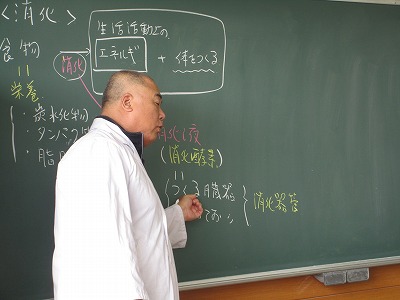 <消化>
生活活動の
エネルギ + 体をつくる
食物
消化
栄養
・炭水化物
・タンパク
・脂
消化液
(消化酵素)
つくる臓器
消化器官